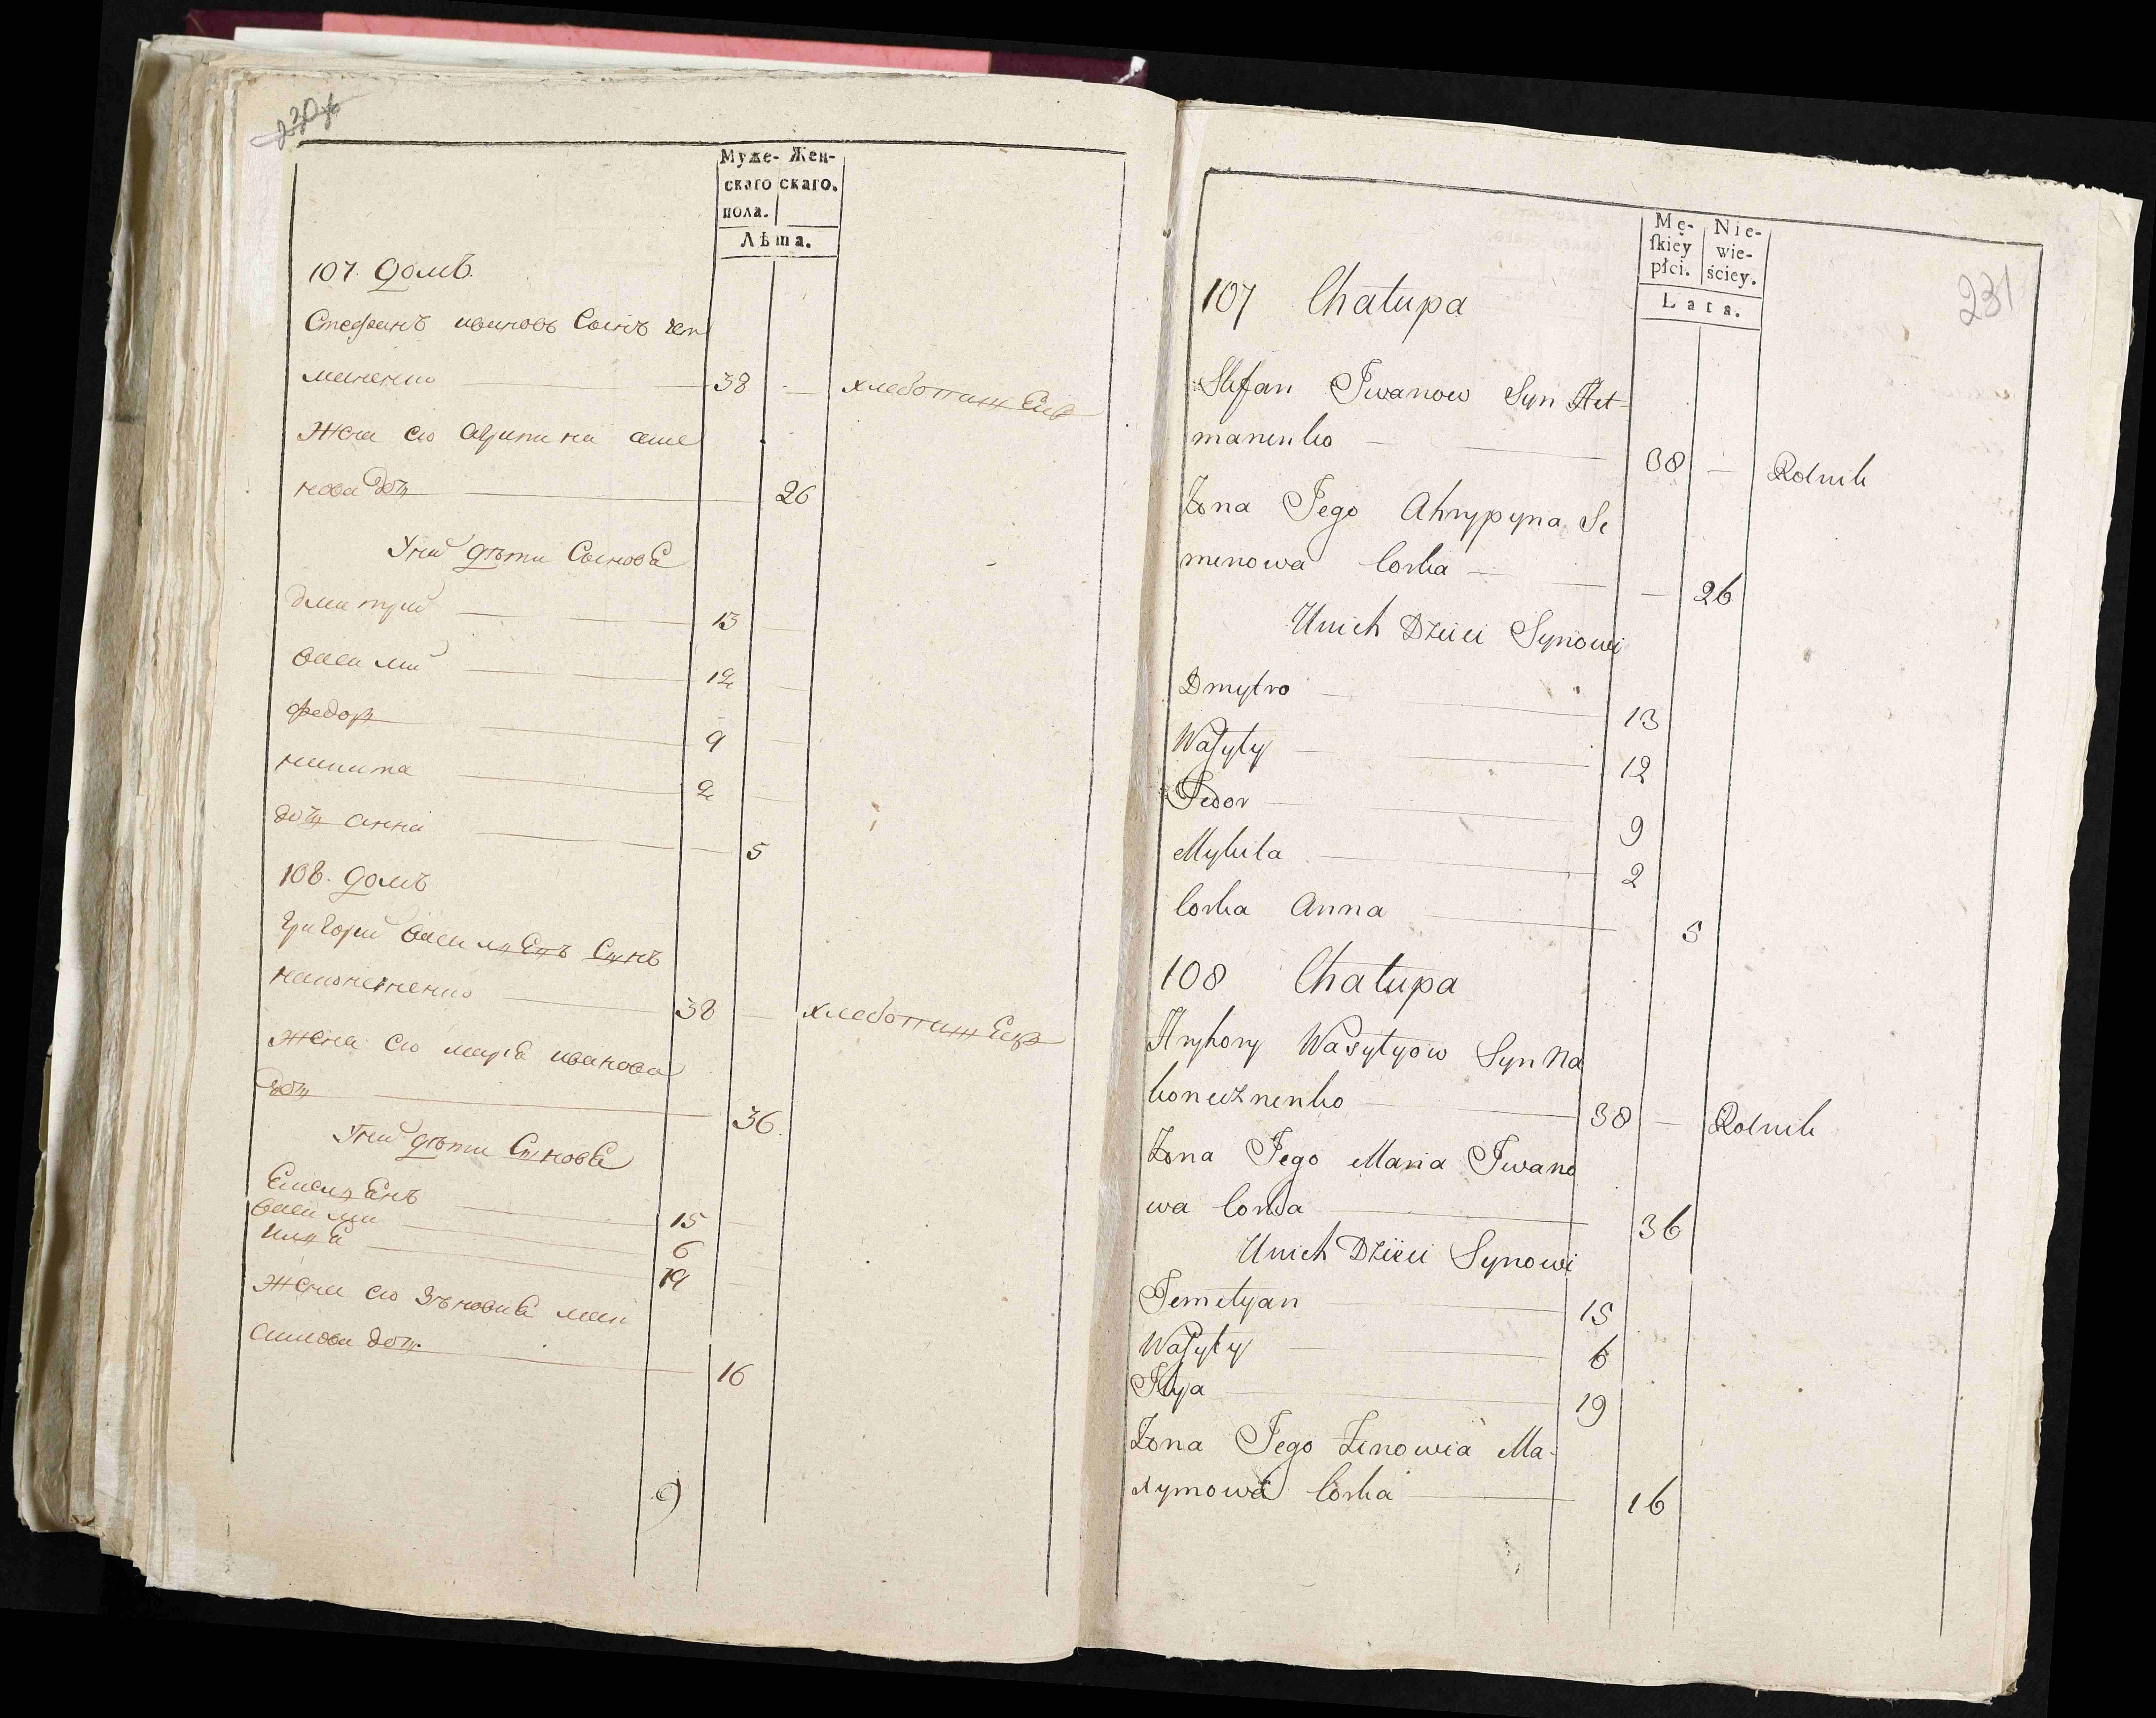 230б
Муже- Жен-
скаго скаго.
пола.
Лѣта.
107. домъ.
Стефанъ ивановъ Сынъ гет
маненко 38 - хлебопашецъ
Жена его агрипина семе
нова дочь 26
У них дѣти Синовя
дмитрий 13
василий 12
федор 9
никита 2
дочь анна 5
108. домъ
григорий василиевъ Синъ
наконечненко 38 - хлебопашецъ
жена его мария иванова
дочь 36
У них дѣти Синовя
Емелиянъ 15
васили 6
илия 19
жена его Зѣновия мак
симова дочь 16
9
231
Mę- Nie-
ſkiey wie-
płci. ściey.
Lata.
107 Chałupa
Stefan Iwanow Syn Het-
manenko 38 - Rolnik
Żona Jego Ahrypyna Se
menowa Corka 26
Unich Dzieci Synowi
Dmytro 13
Waſyly 12
Fedor 9
Mykita 2
Corka Anna 5
108 Chałupa
Hryhory Wasylyow Syn Na
konecznenko 38 - Rolnik
Żona Jego Maria Iwano
wa Corka 36
Unich Dzieci Synowi
Jemelyan 15
Waſyly 6
Ilya 19
Żona Jego Zenowia Ma-
xymowa Corka 16